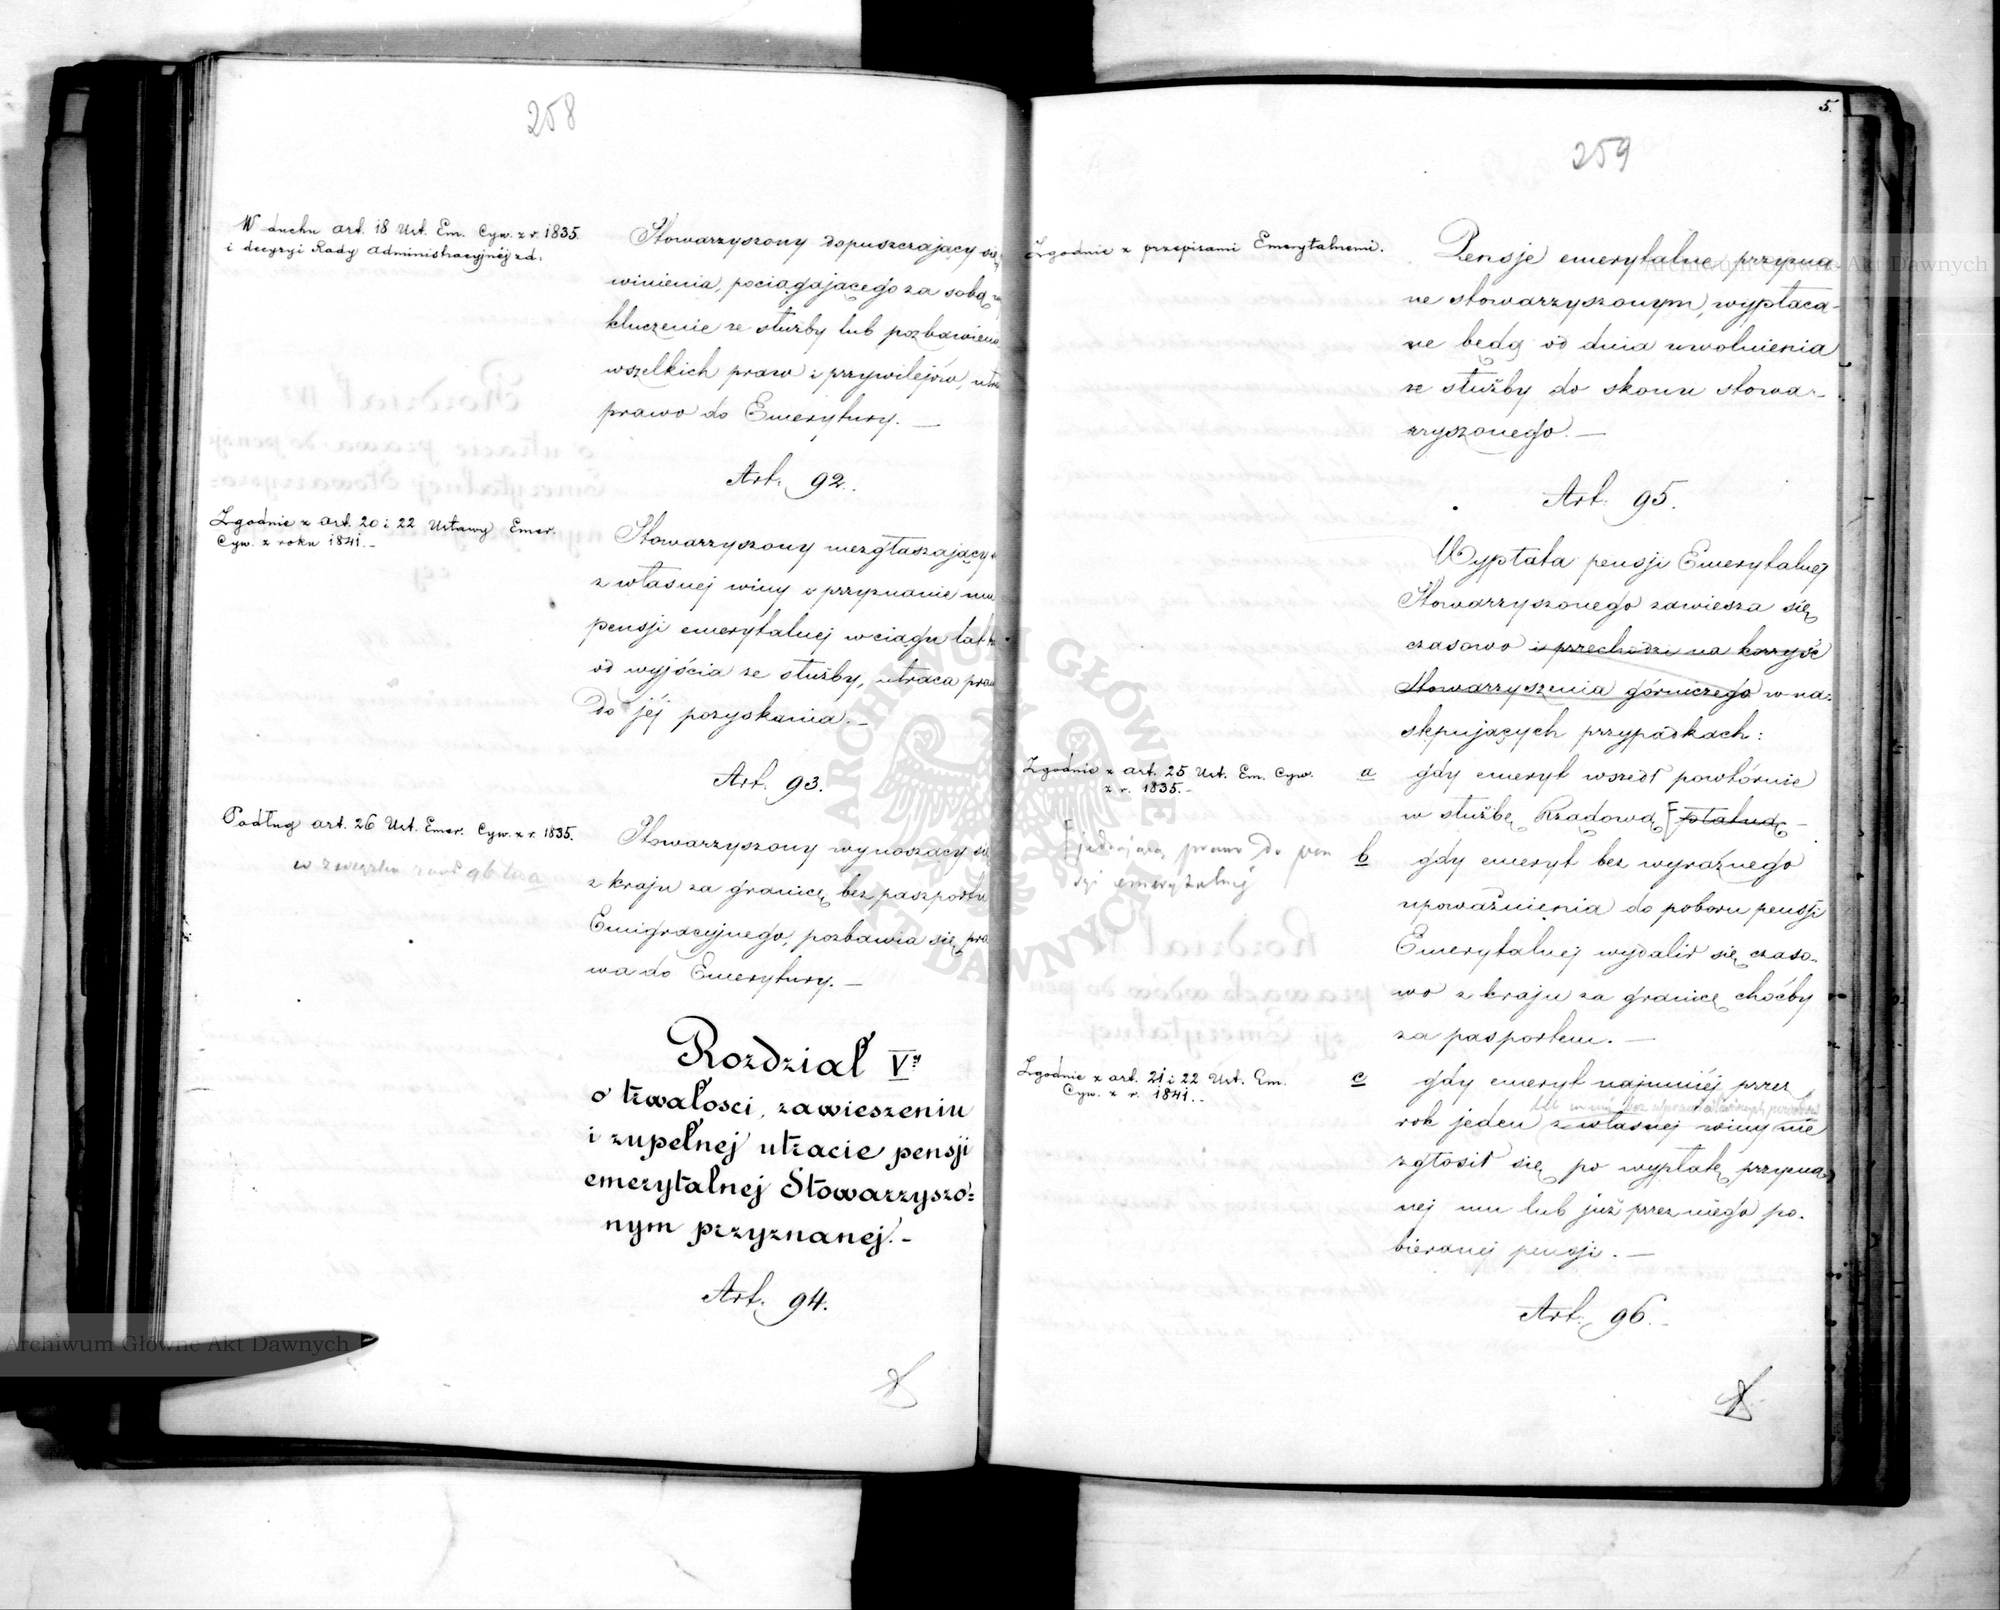 258
W duchu art. 18 Ust. Em. Cyw. z r. 1835.
i decyzyi Rady Administracyjnéj zd.
Stowarzyszony dopuszczający się
winienia, pociągającego za sobą wy
kluczenie ze służby lub pozbawienie
wszelkich praw i przywilejów, utra
prawo do Emerytury. —
Art. 92.
Zgodnie z art. 20 i 22 Ustawy Emer.
Cyw. z roku 1841.—
Stowarzyszony niezgłaszający
z własnej winy o przyznanie mu
pensji emerytalnej w ciągu lat
od wyjścia ze służby, utraca praw
do jéj pozyskania.—
Art. 93.
Podług art. 26 Ust. Emer. Cyw. z r. 1835.
w związku
Stowarzyszony wynoszący się
z kraju za granicę bez paszportu
Emigracyjnego, pozbawia się pra
wa do Emerytury. —
Rozdział V.
o trwałości, zawieszeniu
i zupełnej utracie pensji
emerytalnej Stowarzyszo=
nym przyznanej.—
Art. 94.
5.
259
Zgodnie z przepisami Emerytalnemi.
Pensje emerytalne przyzna
ne stowarzyszonym, wypłaca-
ne będą od dnia uwolnienia
ze służby do skonu stowa-
rzyszonego. —
Art. 95.
Wypłata pensji Emerytalnej
Stowarzyszonego zawiesza się
czasowo i przechodzi na korzyść
Stowarzyszenia górniczego w na-
stępujących przypadkach:
Zgodnie z art. 25 Ust. Em. Cyw.
z r. 1835.—
a gdy emeryt wszedł powtórnie
w służbę Rządową [płatną —
prawo do pen
sji emerytalnej
b gdy emeryt bez wyraźnego
upoważnienia do poboru pensji
Emerytalnej wydalił się czaso-
wo z kraju za granicę choćby
za pasportem. —
Zgodnie z art. 21 i 22 Ust. Em.
Cyw. z r. 1841.—
c gdy emeryt najmniéj przez
rok jeden z własnej winy nie
zgłosił się po wypłatę przyzna
nej mu lub już przez niego po-
bieranej pensji. —
Art. 96.
Archiwum Główne Akt Dawnych
Archiwum Główne Akt Dawnych
ARCHIWUM GŁÓWNE AKT DAWNYCH